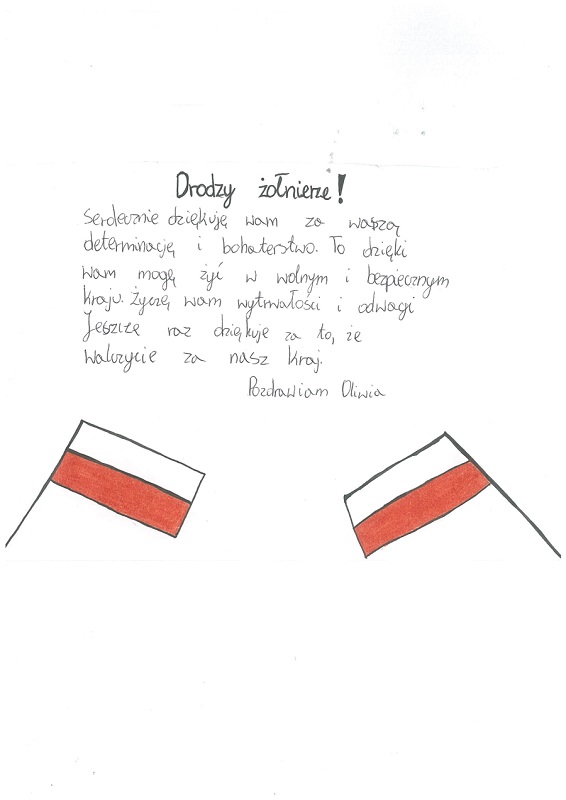 Drodzy żołnierze!
Serdecznie dziękuję wam za waszą
determinację i bohaterstwo. To dzięki
wam mogę żyć w wolnym i bezpiecznym
kraju. Życzę wam wytrwałości i odwagi
Jeszcze raz dziękuje za to, że
walczycie za nasz kraj.
Pozdrawiam Oliwia